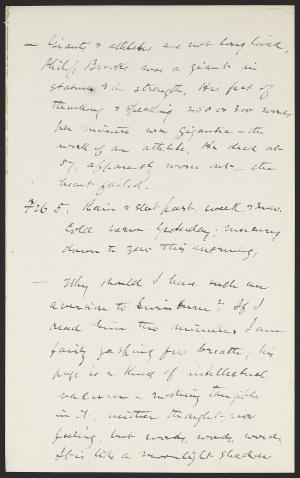 — Giants & athletes are not long lived.
Philip Brooks was a giant in
stature & in strength. His feat of
thinking & speaking 250 or 300 words
per minute was gigantic – the
work of an athlete. He died at
57, apparently worn out – the
heart failed.
Feb 5. Rain & sleet past week & snow.
Cold wave yesterday; mercury
down to zero this morning.
— Why should I have such an
aversion to Swinburn? If I
read him two minutes I am
fairly gasping for breath; his
page is a kind of intellectual
vacuum – nothing tangible
in it, neither thought nor
feeling, but words, words, words
It is like a moonlight shadow